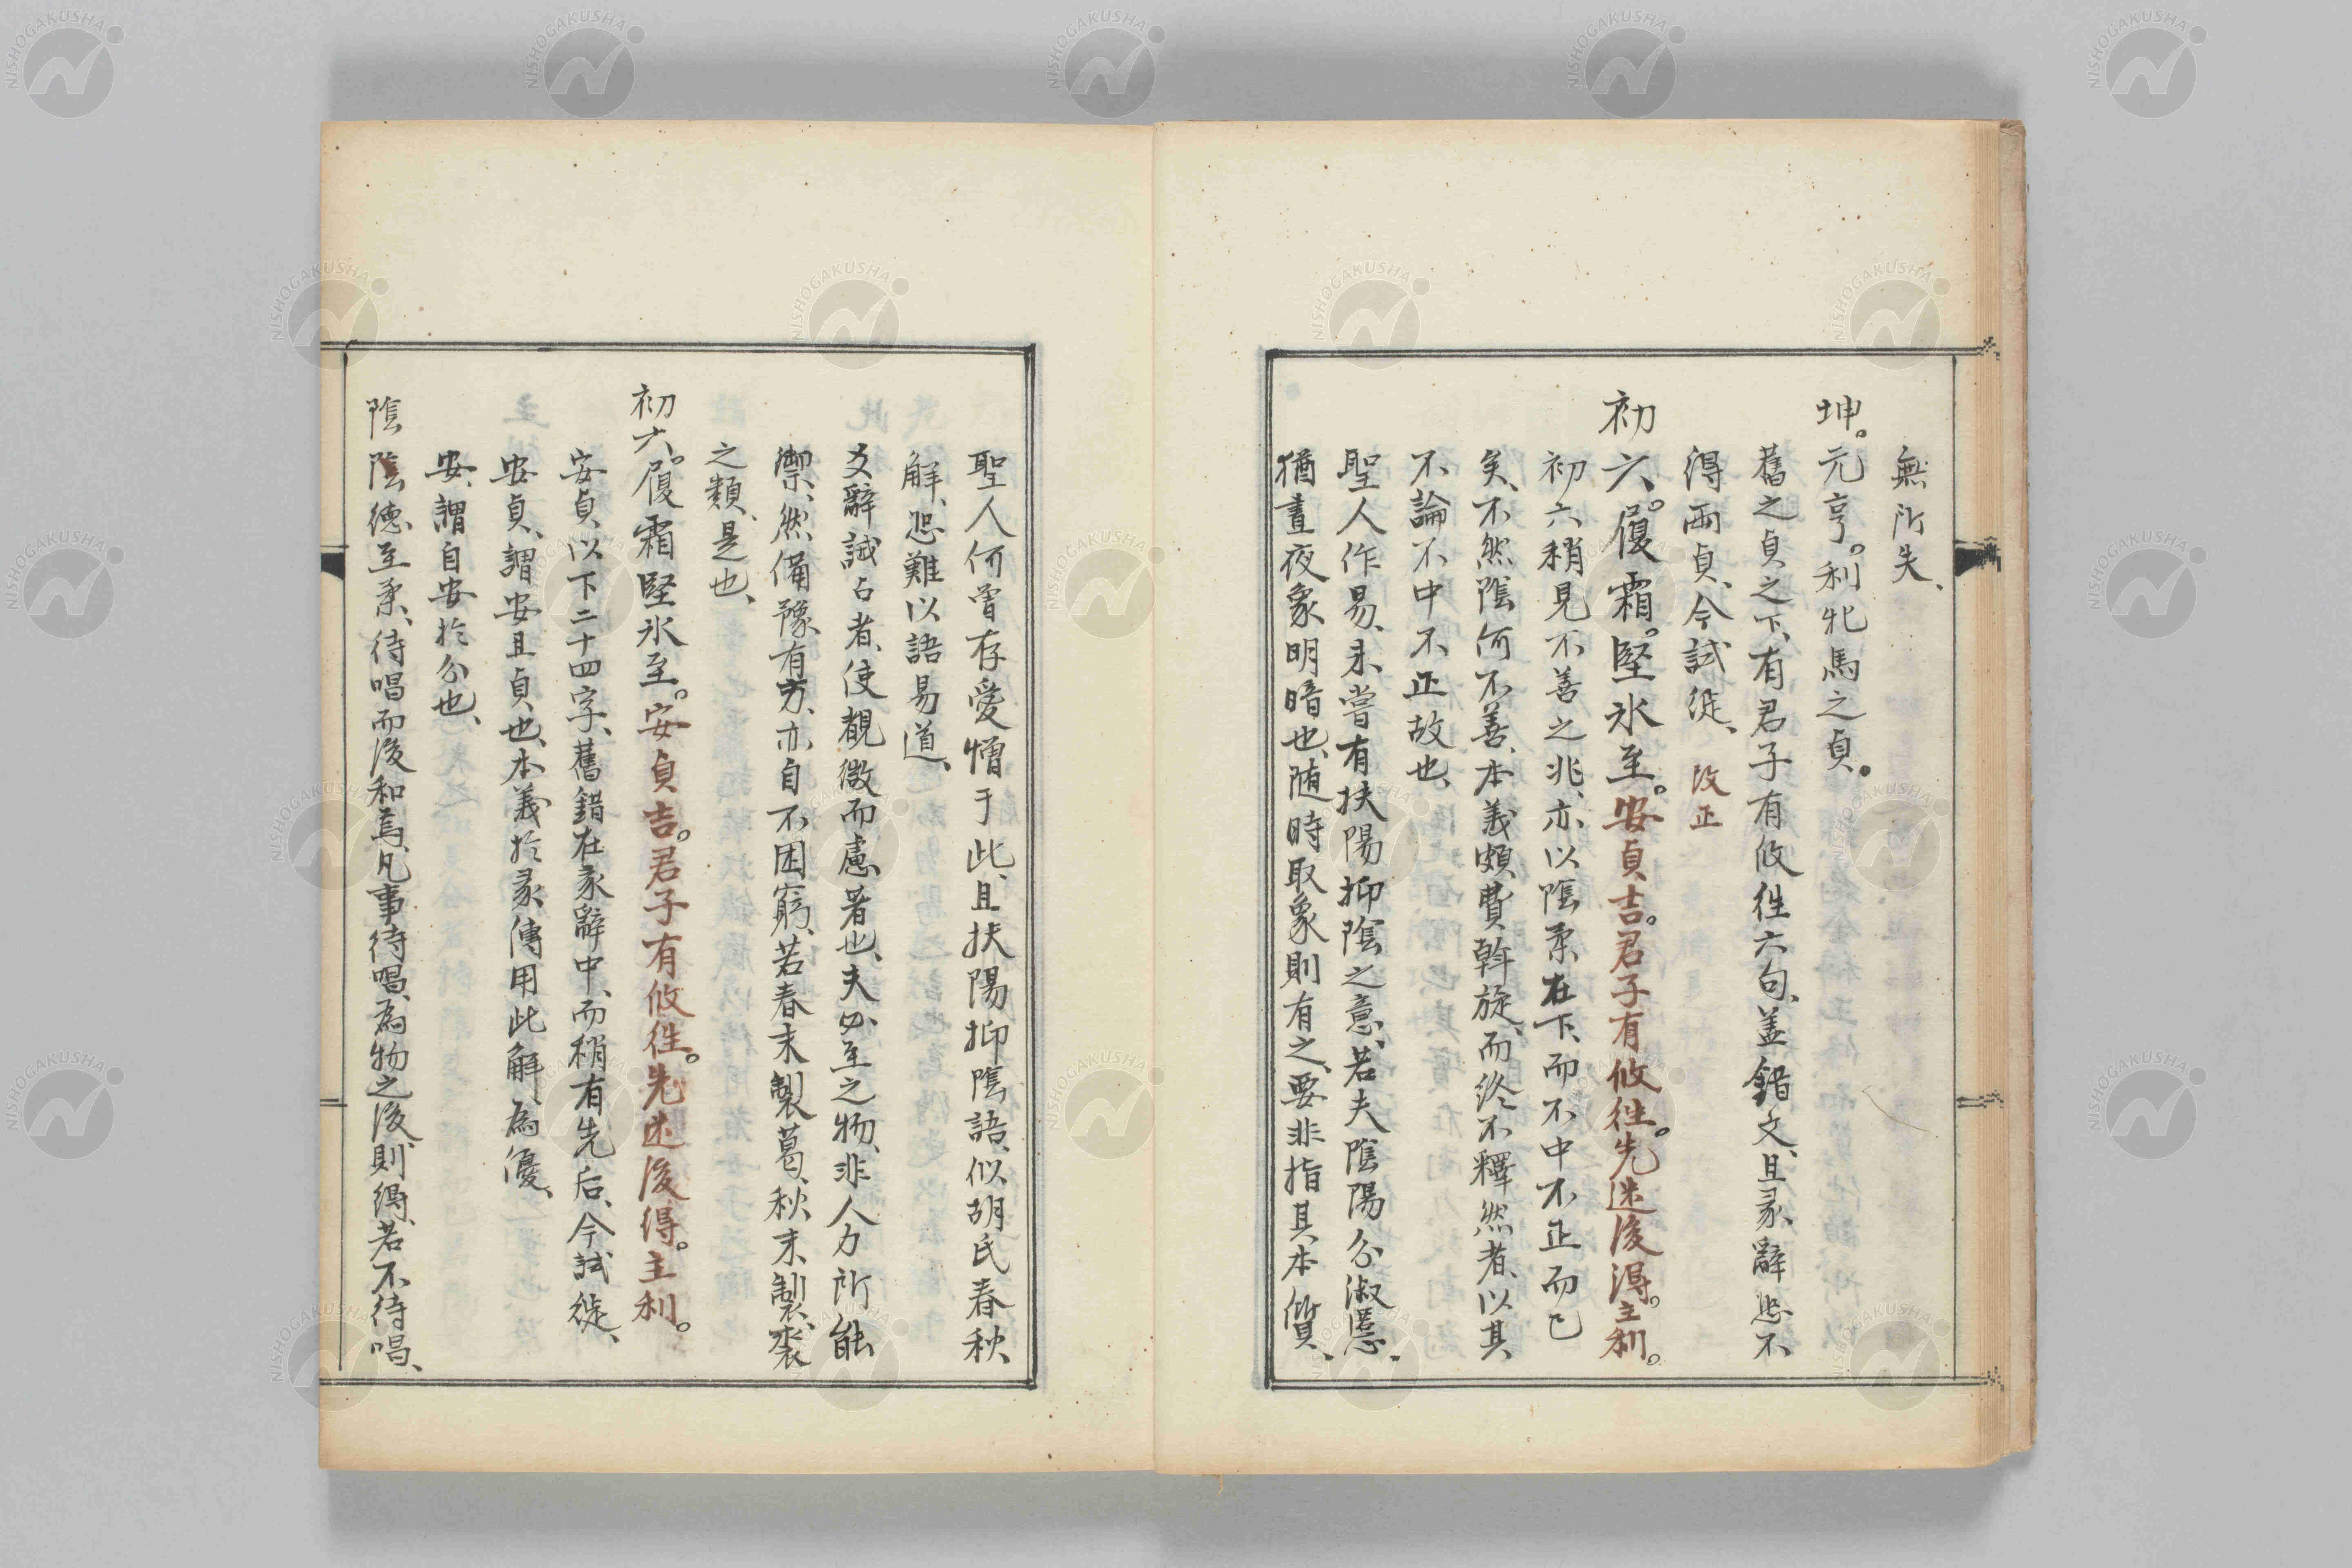 無所失、
坤。元亨。利牝馬之貞。
舊之貞之下、有君子有攸往六句、盖錯文、且彖辭恐不
得両貞、今試徙、改正
初六。履霜。堅氷至。安貞吉。君子有攸往。先迷後得。主利。
初六稍見不善之兆、亦以陰柔在下、而不中不正而已
矣、不然陰何不善、本義頗費斡旋、而終不釋然者、以其
不論不中不正故也、
聖人作易、未嘗有扶陽抑陰之意、若夫陰陽分淑慝、
猶晝夜象明暗也、随時取象則有之、要非指其本質、
聖人何曾存愛憎于此、且扶陽抑陰語、似胡氏春秋
解、恐難以語易道、
爻辭誡占者、使覩微而慮著也、夫必至之物、非人力所能
禦、然備豫有方、亦自不困窮、若春末製葛、秋末製裘
之類、是也、
初六。履霜堅氷至。安貞吉。君子有攸往。先迷後得。主利。
安貞、以下二十四字、舊錯在彖辭中、而稍有先后、今試徙、
安貞、謂安且貞也、本義於彖傳用此解、為優、
安、謂自安於分也、
陰陰德至柔、待唱而後和焉、凡事待唱、為物之後、則得、若不待唱、
NISHOGAKUSHA